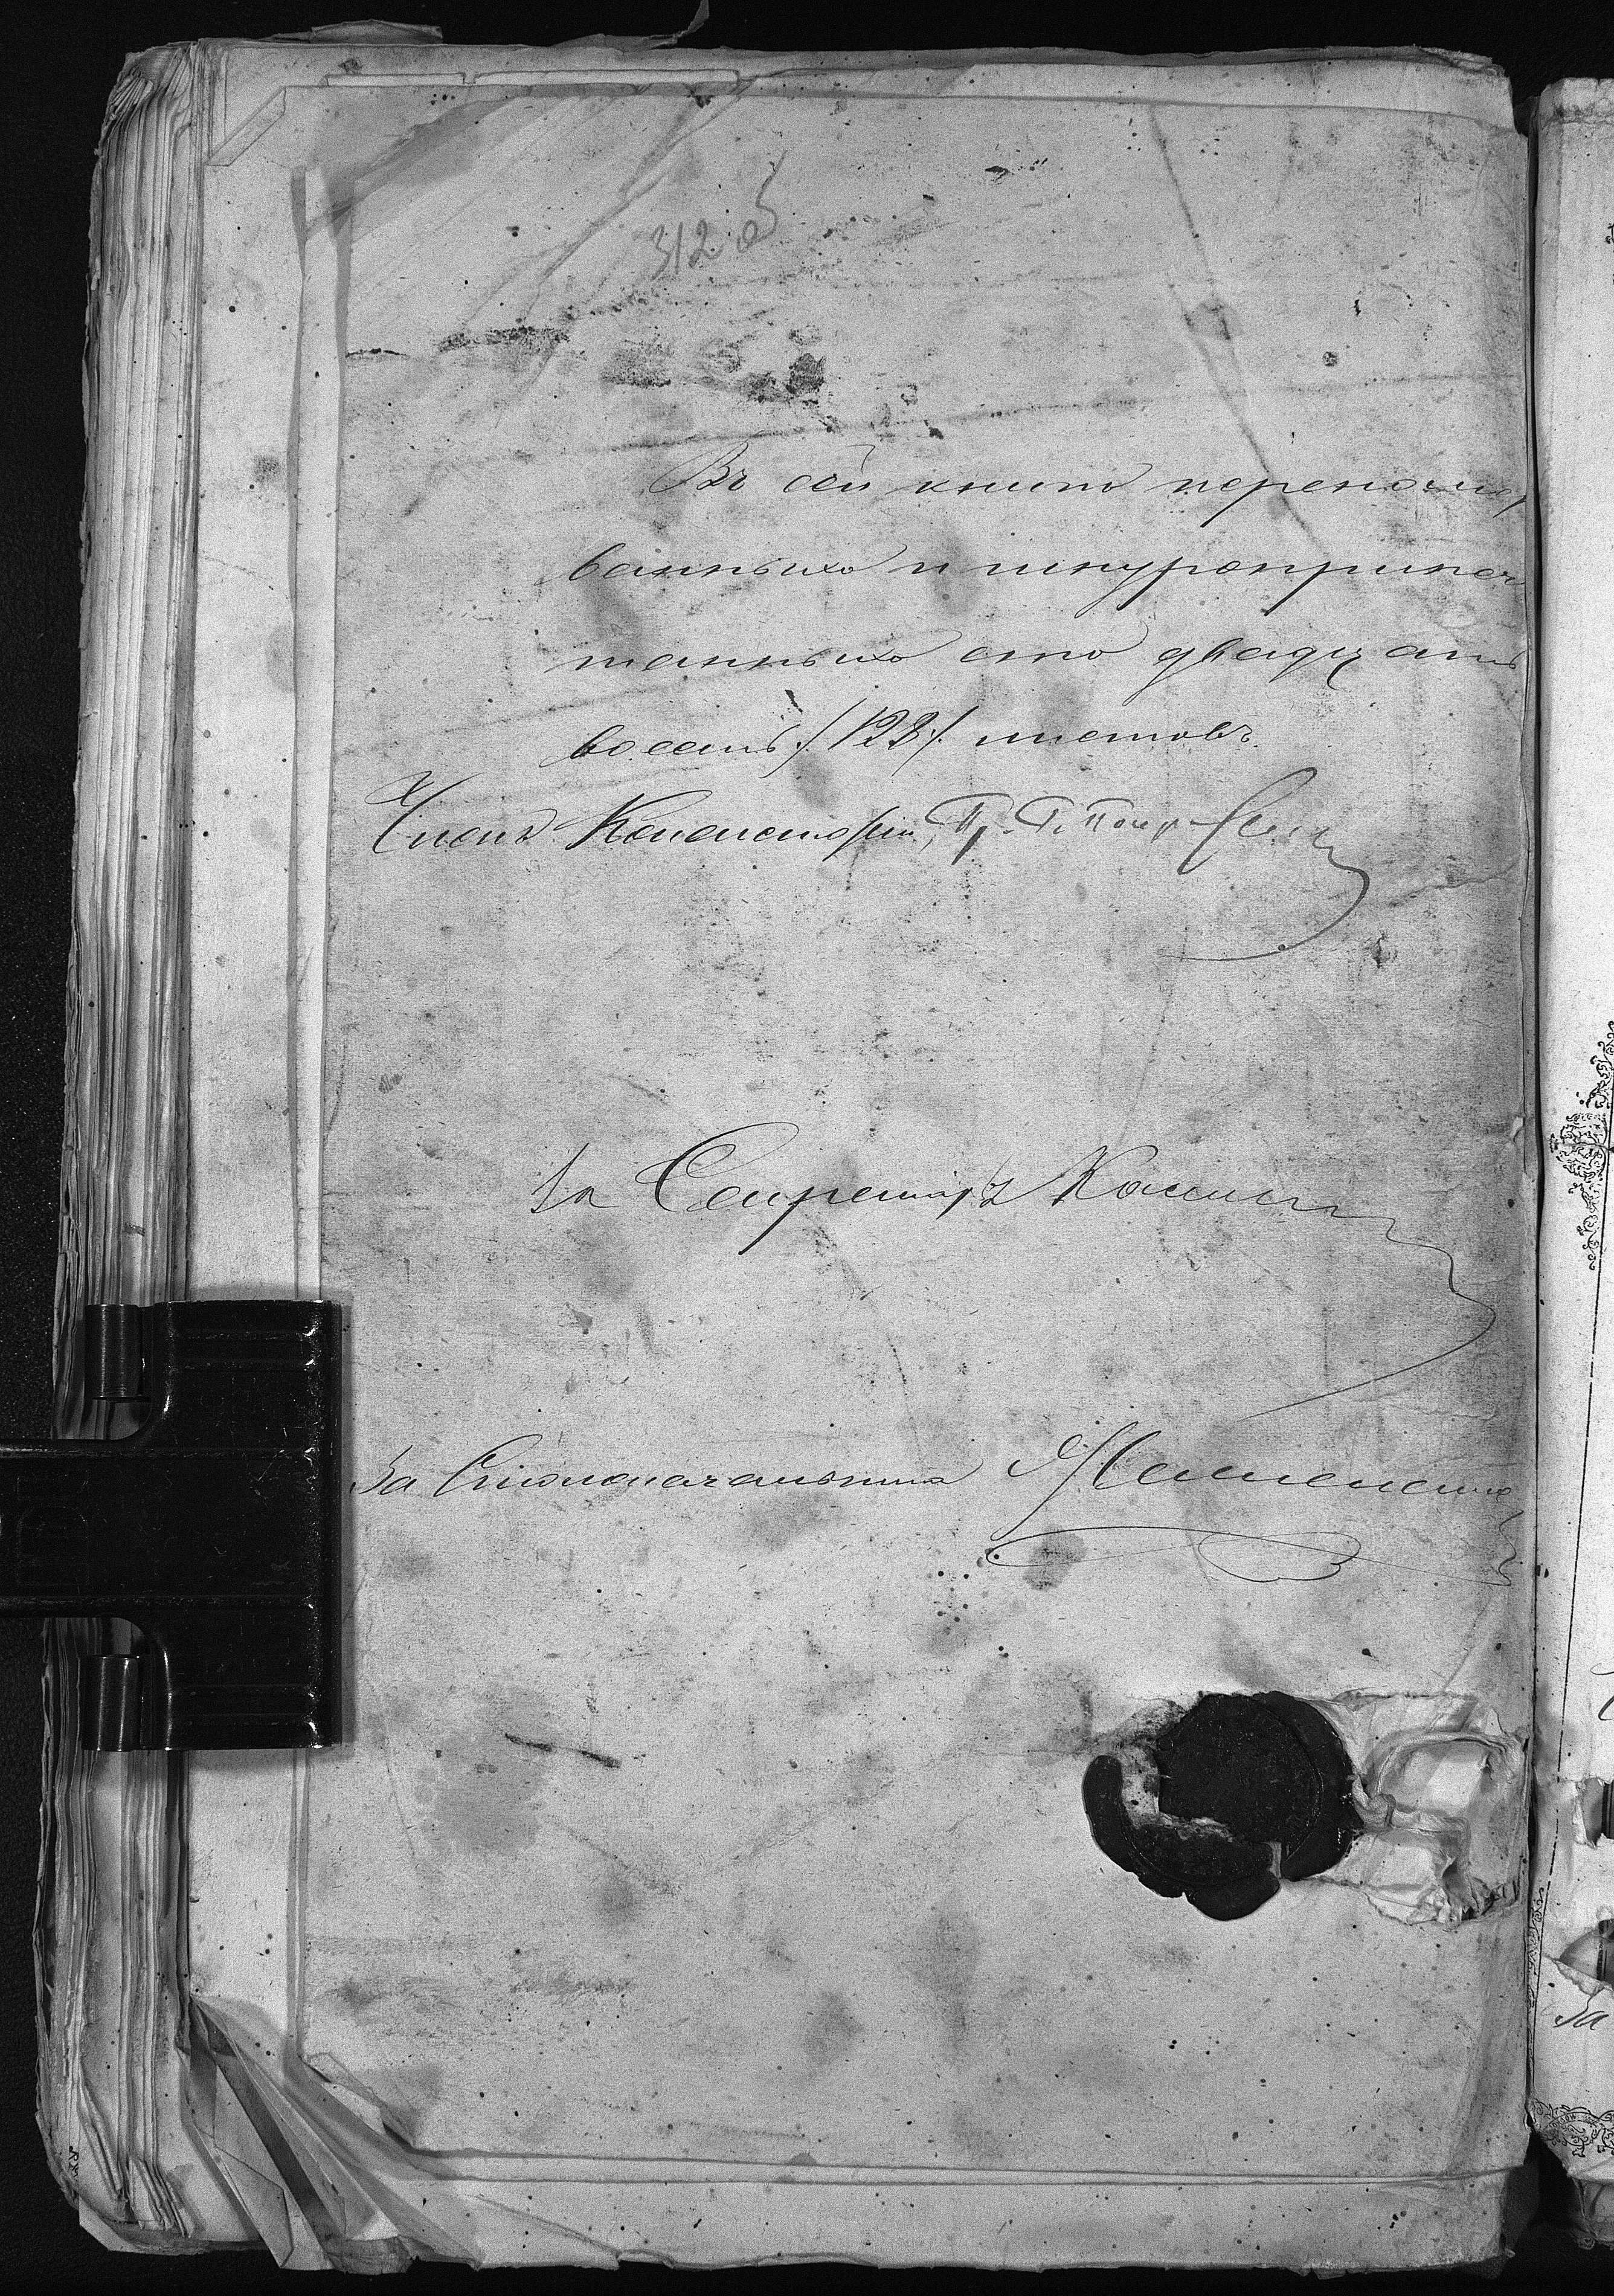 312 об
Въ сей книге перенумеро
ванныхъ и шнуроприпеча
танныхъ сто двадцать
восемь /128/ листовъ.
Членъ Консисторіи, Пр. Г.
За Секретаря
За Столоначальника
За